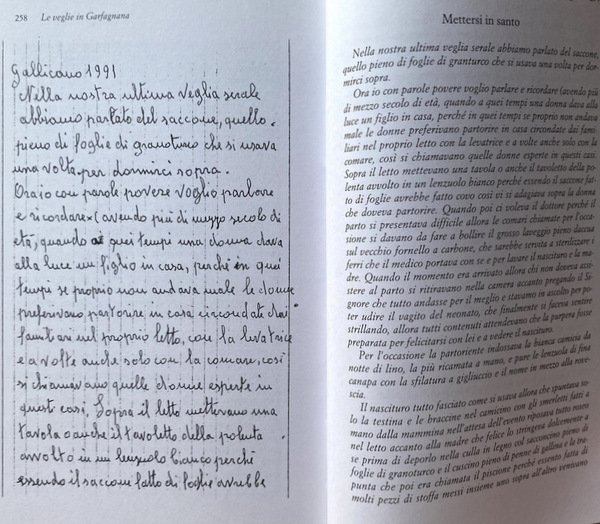 258 Le veglie in Garfagnana
Gallicano 1991
Nella nostra ultima veglia serale
abbiamo parlato del saccone, quello
pieno di foglie di granoturco che si usava
una volta per dormirci sopra.
Ora io con parole povere voglio parlare
e ricordare (avendo più di mezzo secolo di
età, quando a quei tempi una donna dava
alla luce un figlio in casa, perché in quei
tempi se proprio non andava male le donne
preferivano partorire in casa circondate dai
familiari nel proprio letto, con la levatrice
e a volte anche solo con la comare, così
si chiamavano quelle donne esperte in
questi casi. Sopra il letto mettevano una
tavola o anche il tavoletto della polenta
avvolto in un lenzuolo bianco perché
essendo il saccone fatto di foglie avrebbe
Mettersi in santo
Nella nostra ultima veglia serale abbiamo parlato del saccone,
quello pieno di foglie di granturco che si usava una volta per dor-
mirci sopra.
Ora io con parole povere voglio parlare e ricordare (avendo più
di mezzo secolo di età, quando a quei tempi una donna dava alla
luce un figlio in casa, perché in quei tempi se proprio non andava
male le donne preferivano partorire in casa circondate dai fami-
liari nel proprio letto con la levatrice e a volte anche solo con la
comare, così si chiamavano quelle donne esperte in questi casi.
Sopra il letto mettevano una tavola o anche il tavoletto della po-
lenta avvolto in un lenzuolo bianco perché essendo il saccone fat-
to di foglie avrebbe fatto covo così vi si adagiava sopra la donna
che doveva partorire. Quando poi ci voleva il dottore perché il
parto si presentava difficile allora le comari chiamate per l'occa-
sione si davano da fare a bollire il grosso laveggio pieno dacqua
sul vecchio fornello a carbone, che sarebbe servita a sterilizzare i
ferri che il medico portava con se e per lavare il nascituro e la ma-
dre. Quando il momento era arrivato allora chi non doveva assi-
stere al parto si ritiravano nella camera accanto pregando il Si-
gnore che tutto andasse per il meglio e stavamo in ascolto per po-
ter udire il vagito del neonato, che finalmente si faceva sentere
strillando, allora tutti contenti attendevamo che la purpera fosse
preparata per felicitarsi con lei e a vedere il nascituro.
Per l'occasione la partoriente indossava la bianca camicia da
notte di lino, la più ricamata a mano, e pure le lenzuola di fina
canapa con la sfilatura a gigliuccio e il nome in mezzo alla rove-
scia.
Il nascituro tutto fasciato come si usava allora che spuntava so-
lo la testina e le braccine nel camicino con gli smerletti fatti a
mano dalla mammina nell'attesa dell'evento riposava tutto rosso
nel letto accanto alla madre che felice lo stringeva dolcemente a
se prima di deporlo nella culla in legno col sacconcino pieno di
foglie di granoturco e il cuscino pieno di penne di gallina e la tra-
punta che poi era chiamata il piscione perché essento fatta di
molti pezzi di stoffa messi insieme uno sopra all'altro venivano